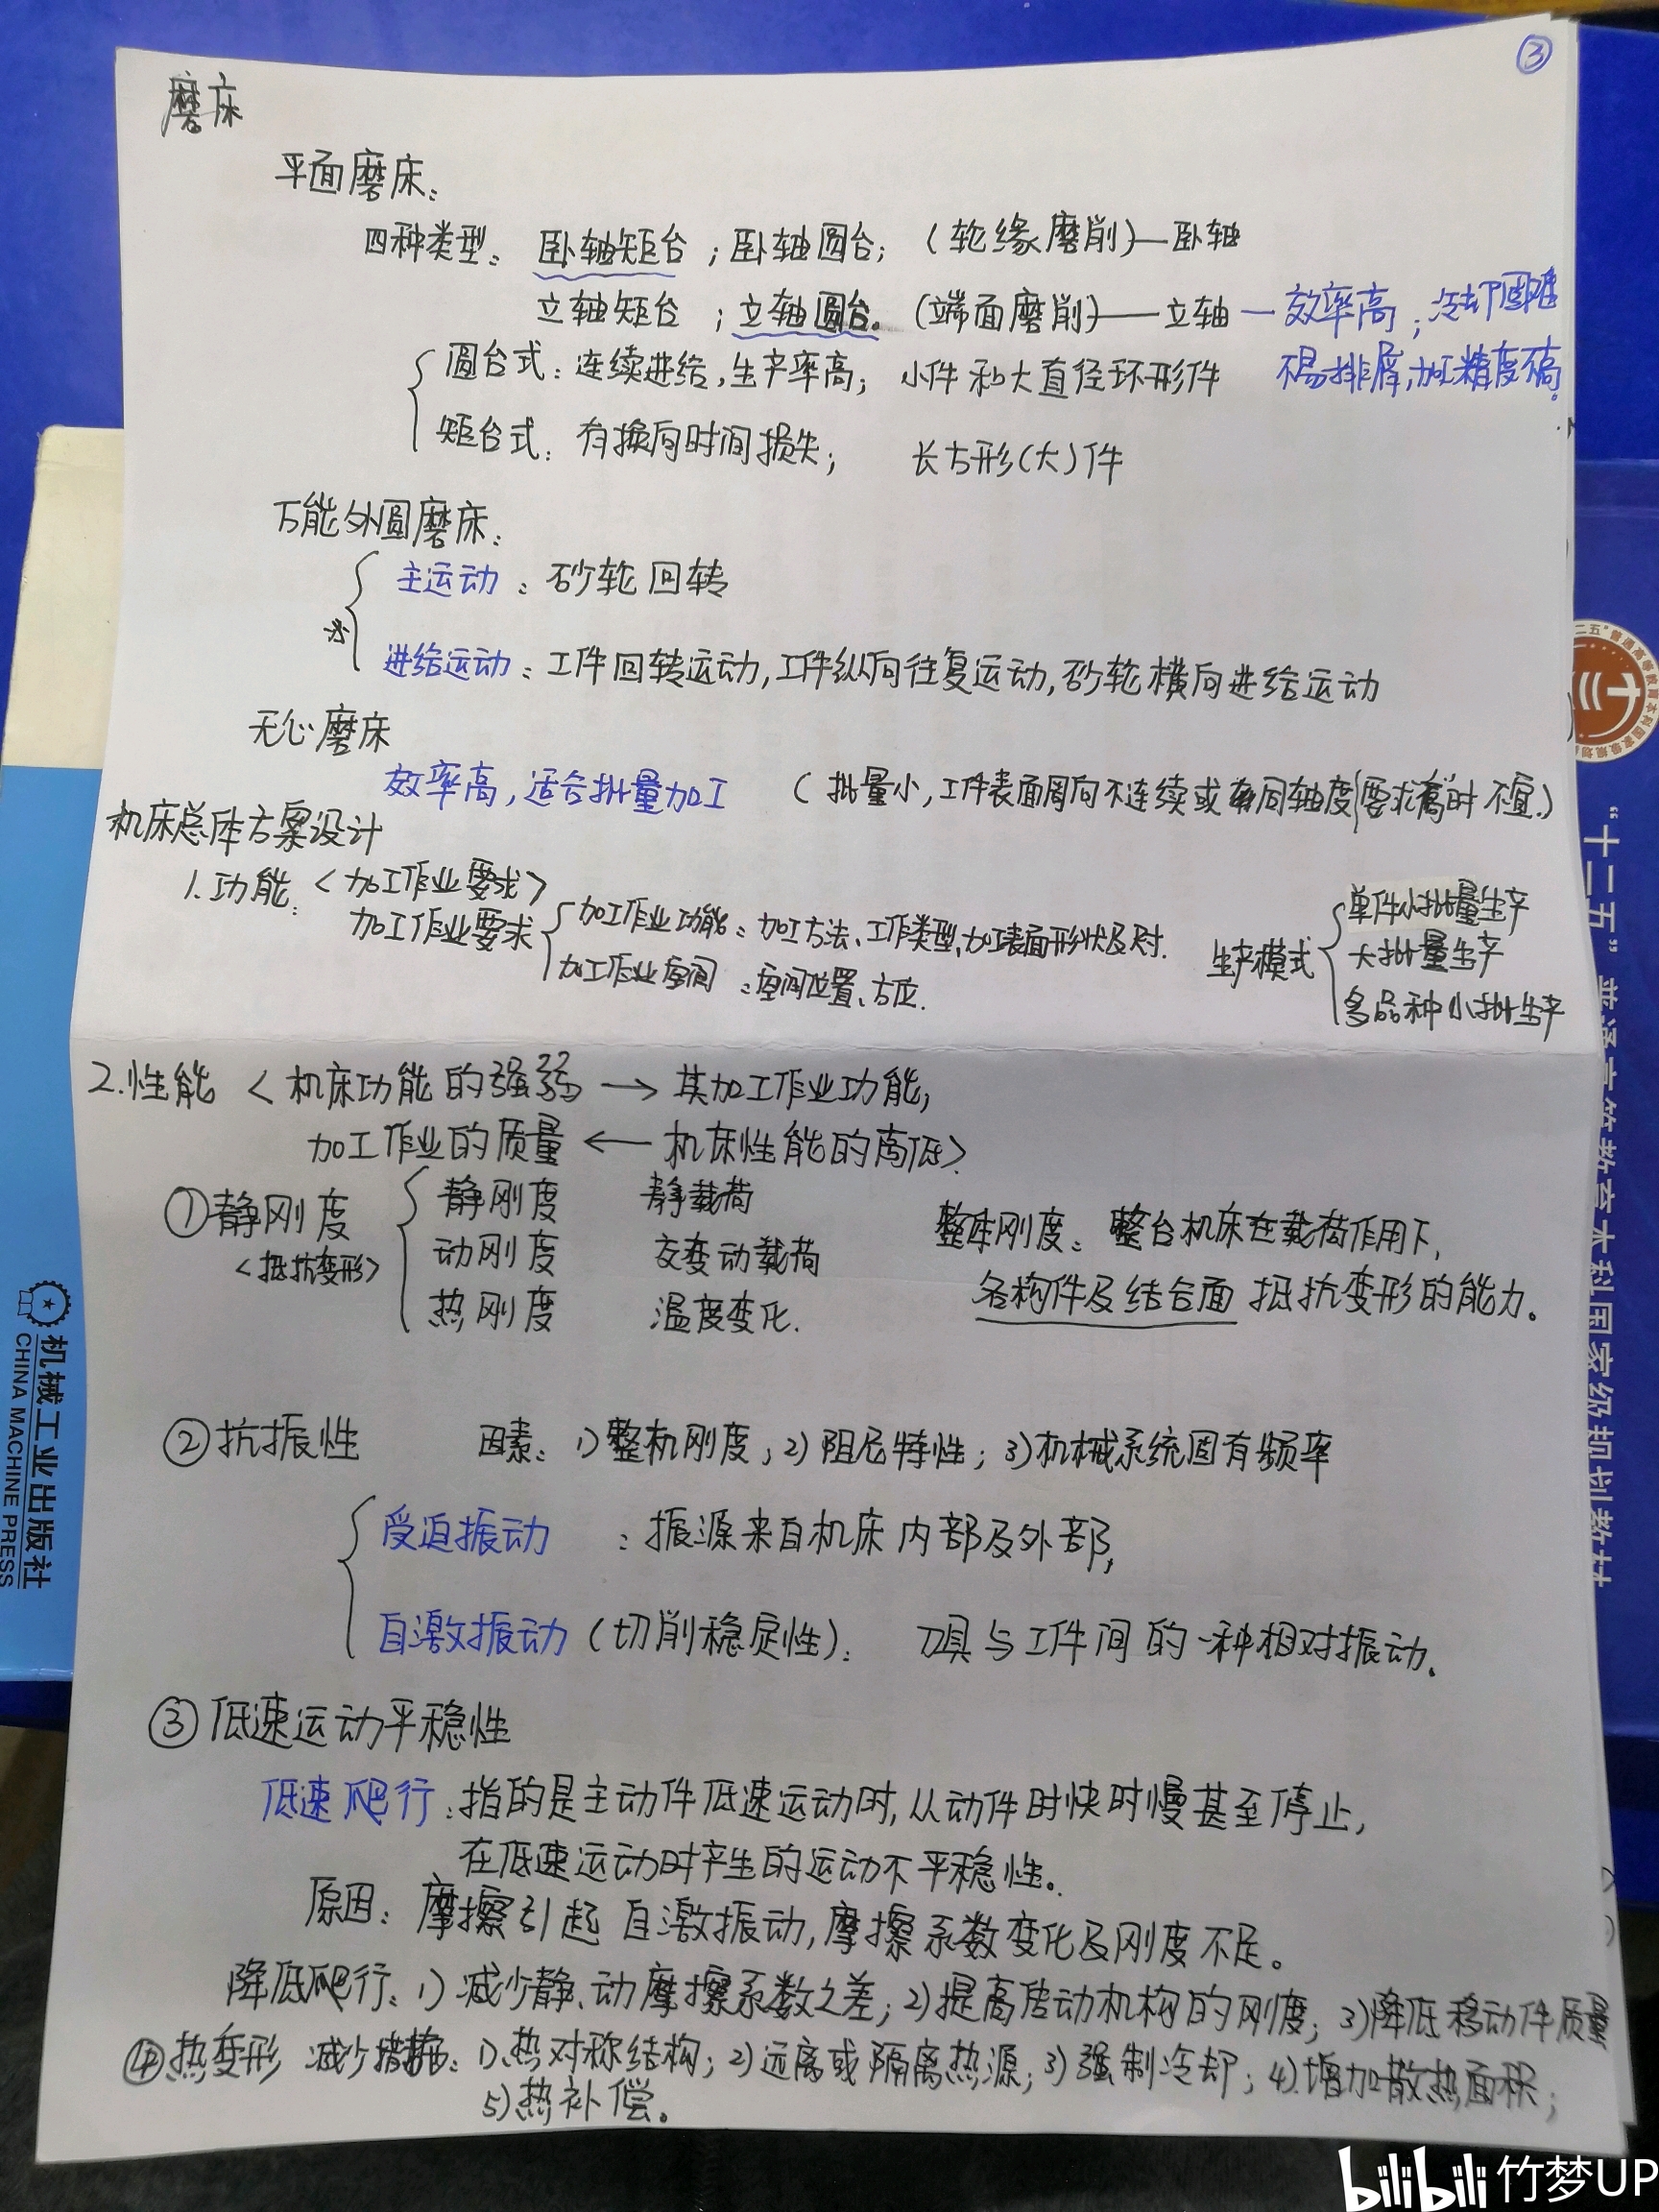 ③
磨床
平面磨床：
四种类型：卧轴矩台；卧轴圆台；（轮缘磨削）—卧轴
立轴矩台；立轴圆台。（端面磨削）—立轴—效率高；冷却困难
不易排屑，加工精度不高。
圆台式：连续进给，生产率高；小件和大直径环形件
矩台式：有换向时间损失；长方形（大）件
万能外圆磨床：
主运动：砂轮回转
※
进给运动：工件回转运动，工件纵向往复运动，砂轮横向进给运动
无心磨床
效率高，适合批量加工（批量小，工件表面周向不连续或同轴度要求高时不宜.）
机床总体方案设计
1.功能：<加工作业要求>
加工作业要求
加工作业功能：加工方法、工作类型，加工表面形状及尺寸.
加工作业空间：空间位置、方位.
生产模式
单件小批量生产
大批量生产
多品种小批生产
2.性能<机床功能的强弱→其加工作业功能；
加工作业的质量←机床性能的高低>
①静刚度
<抵抗变形>
静刚度 静载荷
动刚度 交变动载荷
热刚度 温度变化.
整体刚度：整台机床在载荷作用下，
各构件及结合面抵抗变形的能力。
②抗振性 因素：1)整机刚度；2)阻尼特性；3)机械系统固有频率
受迫振动：振源来自机床内部及外部，
自激振动（切削稳定性）：刀具与工件间的一种相对振动。
③低速运动平稳性
低速爬行：指的是主动件低速运动时，从动件时快时慢甚至停止，
在低速运动时产生的运动不平稳性。
原因：摩擦引起自激振动，摩擦系数变化及刚度不足。
降低爬行：1)减少静、动摩擦系数之差；2)提高传动机构的刚度；3)降低移动件质量
④热变形 减少措施：1)热对称结构；2)远离或隔离热源；3)强制冷却；4)增加散热面积；
5)热补偿。
机械工业出版社
CHINA MACHINE PRESS
“十二五”普通高等教育本科国家级规划教材
bilibili 竹梦UP